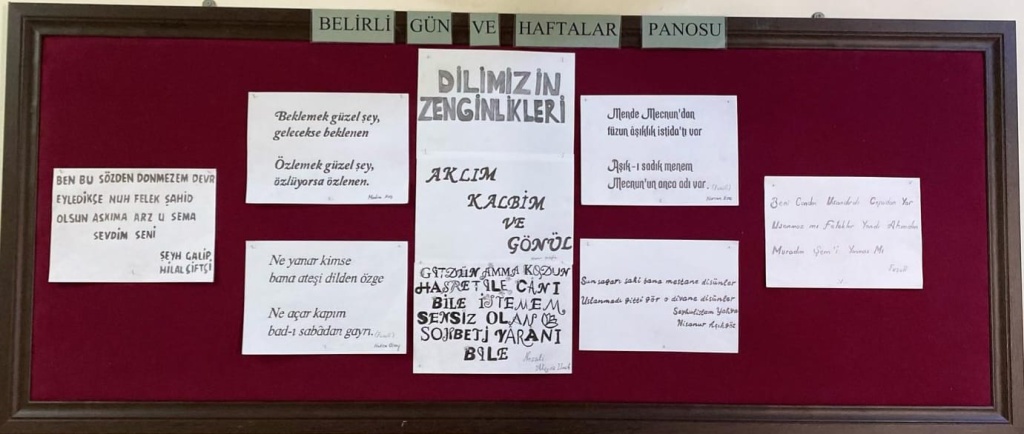 BELİRLİ GÜN VE HAFTALAR PANOSU
BEN BU SÖZDEN DONMEZEM DEVR
EYLEDİKÇE NUH FELEK ŞAHİD
OLSUN AŞKIMA ARZ U SEMA
SEVDİM SENİ
ŞEYH GALİP
HİLAL ŞİFTÇİ
Beklemek güzel şey,
gelecekse beklenen
Özlemek güzel şey,
özlüyorsa özlenen.
Ne yanar kimse
bana ateşi dilden özge
Ne açar kapım
bad-ı sabâdan gayrı.
DİLİMİZİN
ZENGİNLİKLERİ
AKLIM
KALBİM
VE
GÖNÜL
GİTDÜN AMMA KODUN
HASRET İLE CANI
BİLE İSTEMEM
SENSİZ OLAN
SOHBETİ YÂRANI
BİLE
Mende Mecnun'dan
füzun âşıklık istida'tı var
Aşık-ı sadık menem
Mecnun'un anca adı var.
Sun sagarı saki bana mestane disünler
Uslanmadı gitti gör o divane disünler
Şeyhülislam Yahya
Nisanur Aşıkgöz
Beni Candan Usandırdı Cefadan Yar
Usanmaz mı Felekler Yandı Ahımdan
Muradım Şem'i Yanmaz Mı
Fuzuli